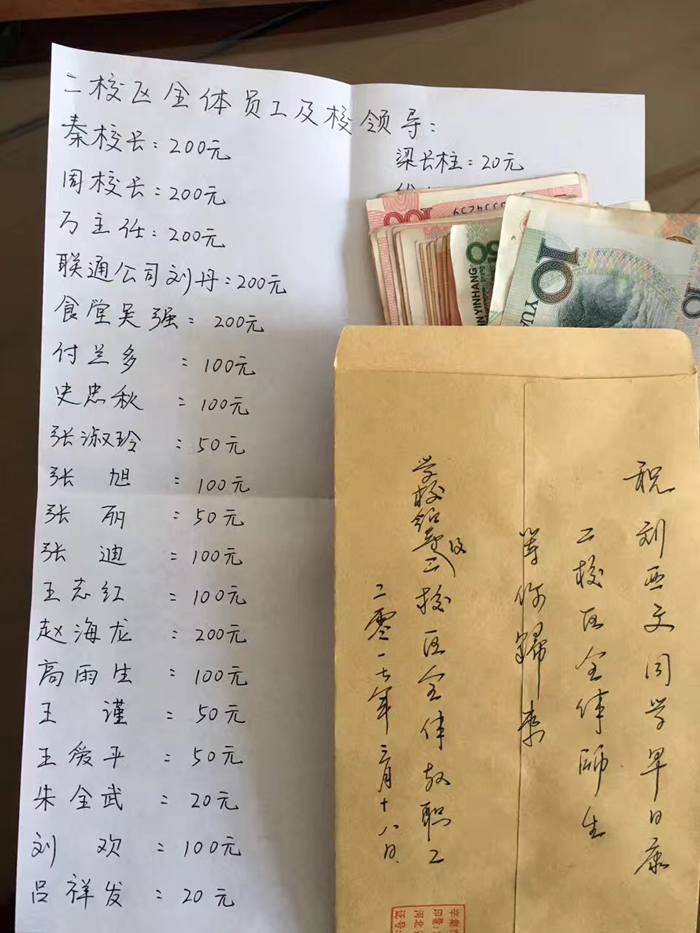 二校区全体员工及校领导:
秦校长:200元
周校长:200元
万主任:200元
联通公司刘丹:200元
食堂吴强:200元
付兰多:100元
史忠秋:100元
张淑玲:50元
张旭:100元
张丽:50元
张迪:100元
王志红:100元
赵海龙:200元
高雨生:100元
王谨:50元
王爱平:50元
朱全武:20元
刘欢:100元
吕祥发:20元
梁长柱:20元
100
50
YINHANG
10
YUAN
祝刘亚文同学早日康
二校区全体师生
等你歸来
学校领导及二校区全体教职工
二零一七年三月十八日